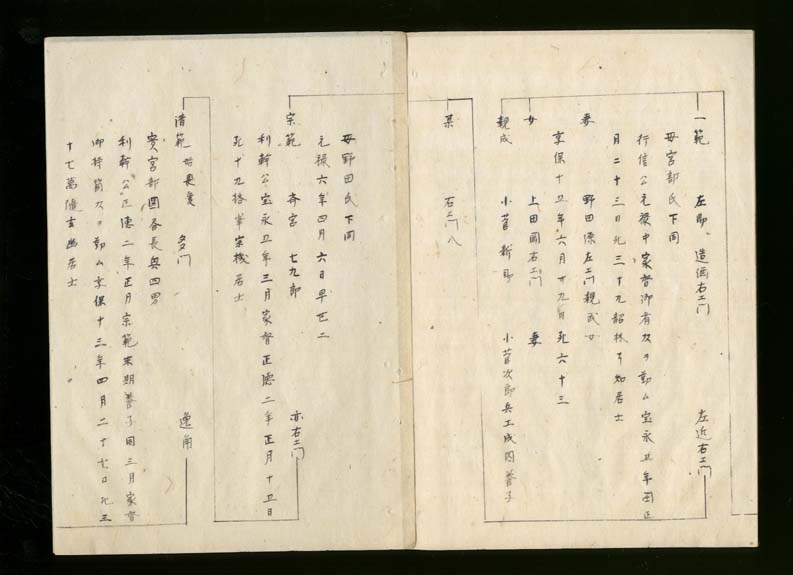 一範 左助 造酒右エ門 左近右エ門
母宮部氏下同
行信公元禄中家督御有次ヲ勤ム宝永五年閏正
月二十三日死三十九韶林了知居士
妻 野田源左エ門親成女
享保十五年六月廿九日死六十三
女 上田圓右エ門 妻
親成 小菅新助 小菅次郎兵エ成因養子
某 右エ門八
母野田氏下同
元禄六年四月六日早世二
宗範 斎宮 七九郎 亦右エ門
利幹公宝永五年三月家督正徳二年正月十五日
死十九 宗機居士
清範 多門 逸角
実宮部團各長與四男
利幹公正徳二年正月宗範末期養子同三月家督
御持筒次ヲ勤ム享保十三年四月二十七日死三
十七 玄幽居士